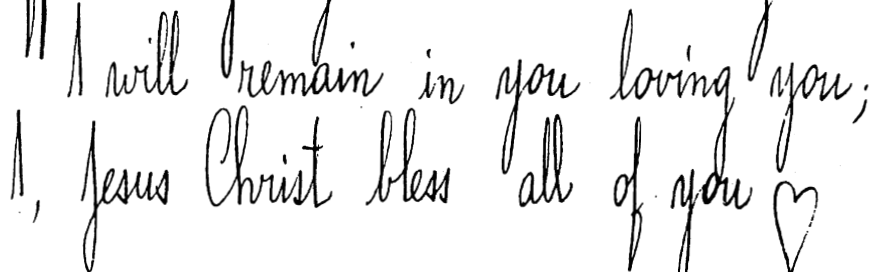 "I will remain in you loving you;
I, Jesus Christ bless all of you ♡